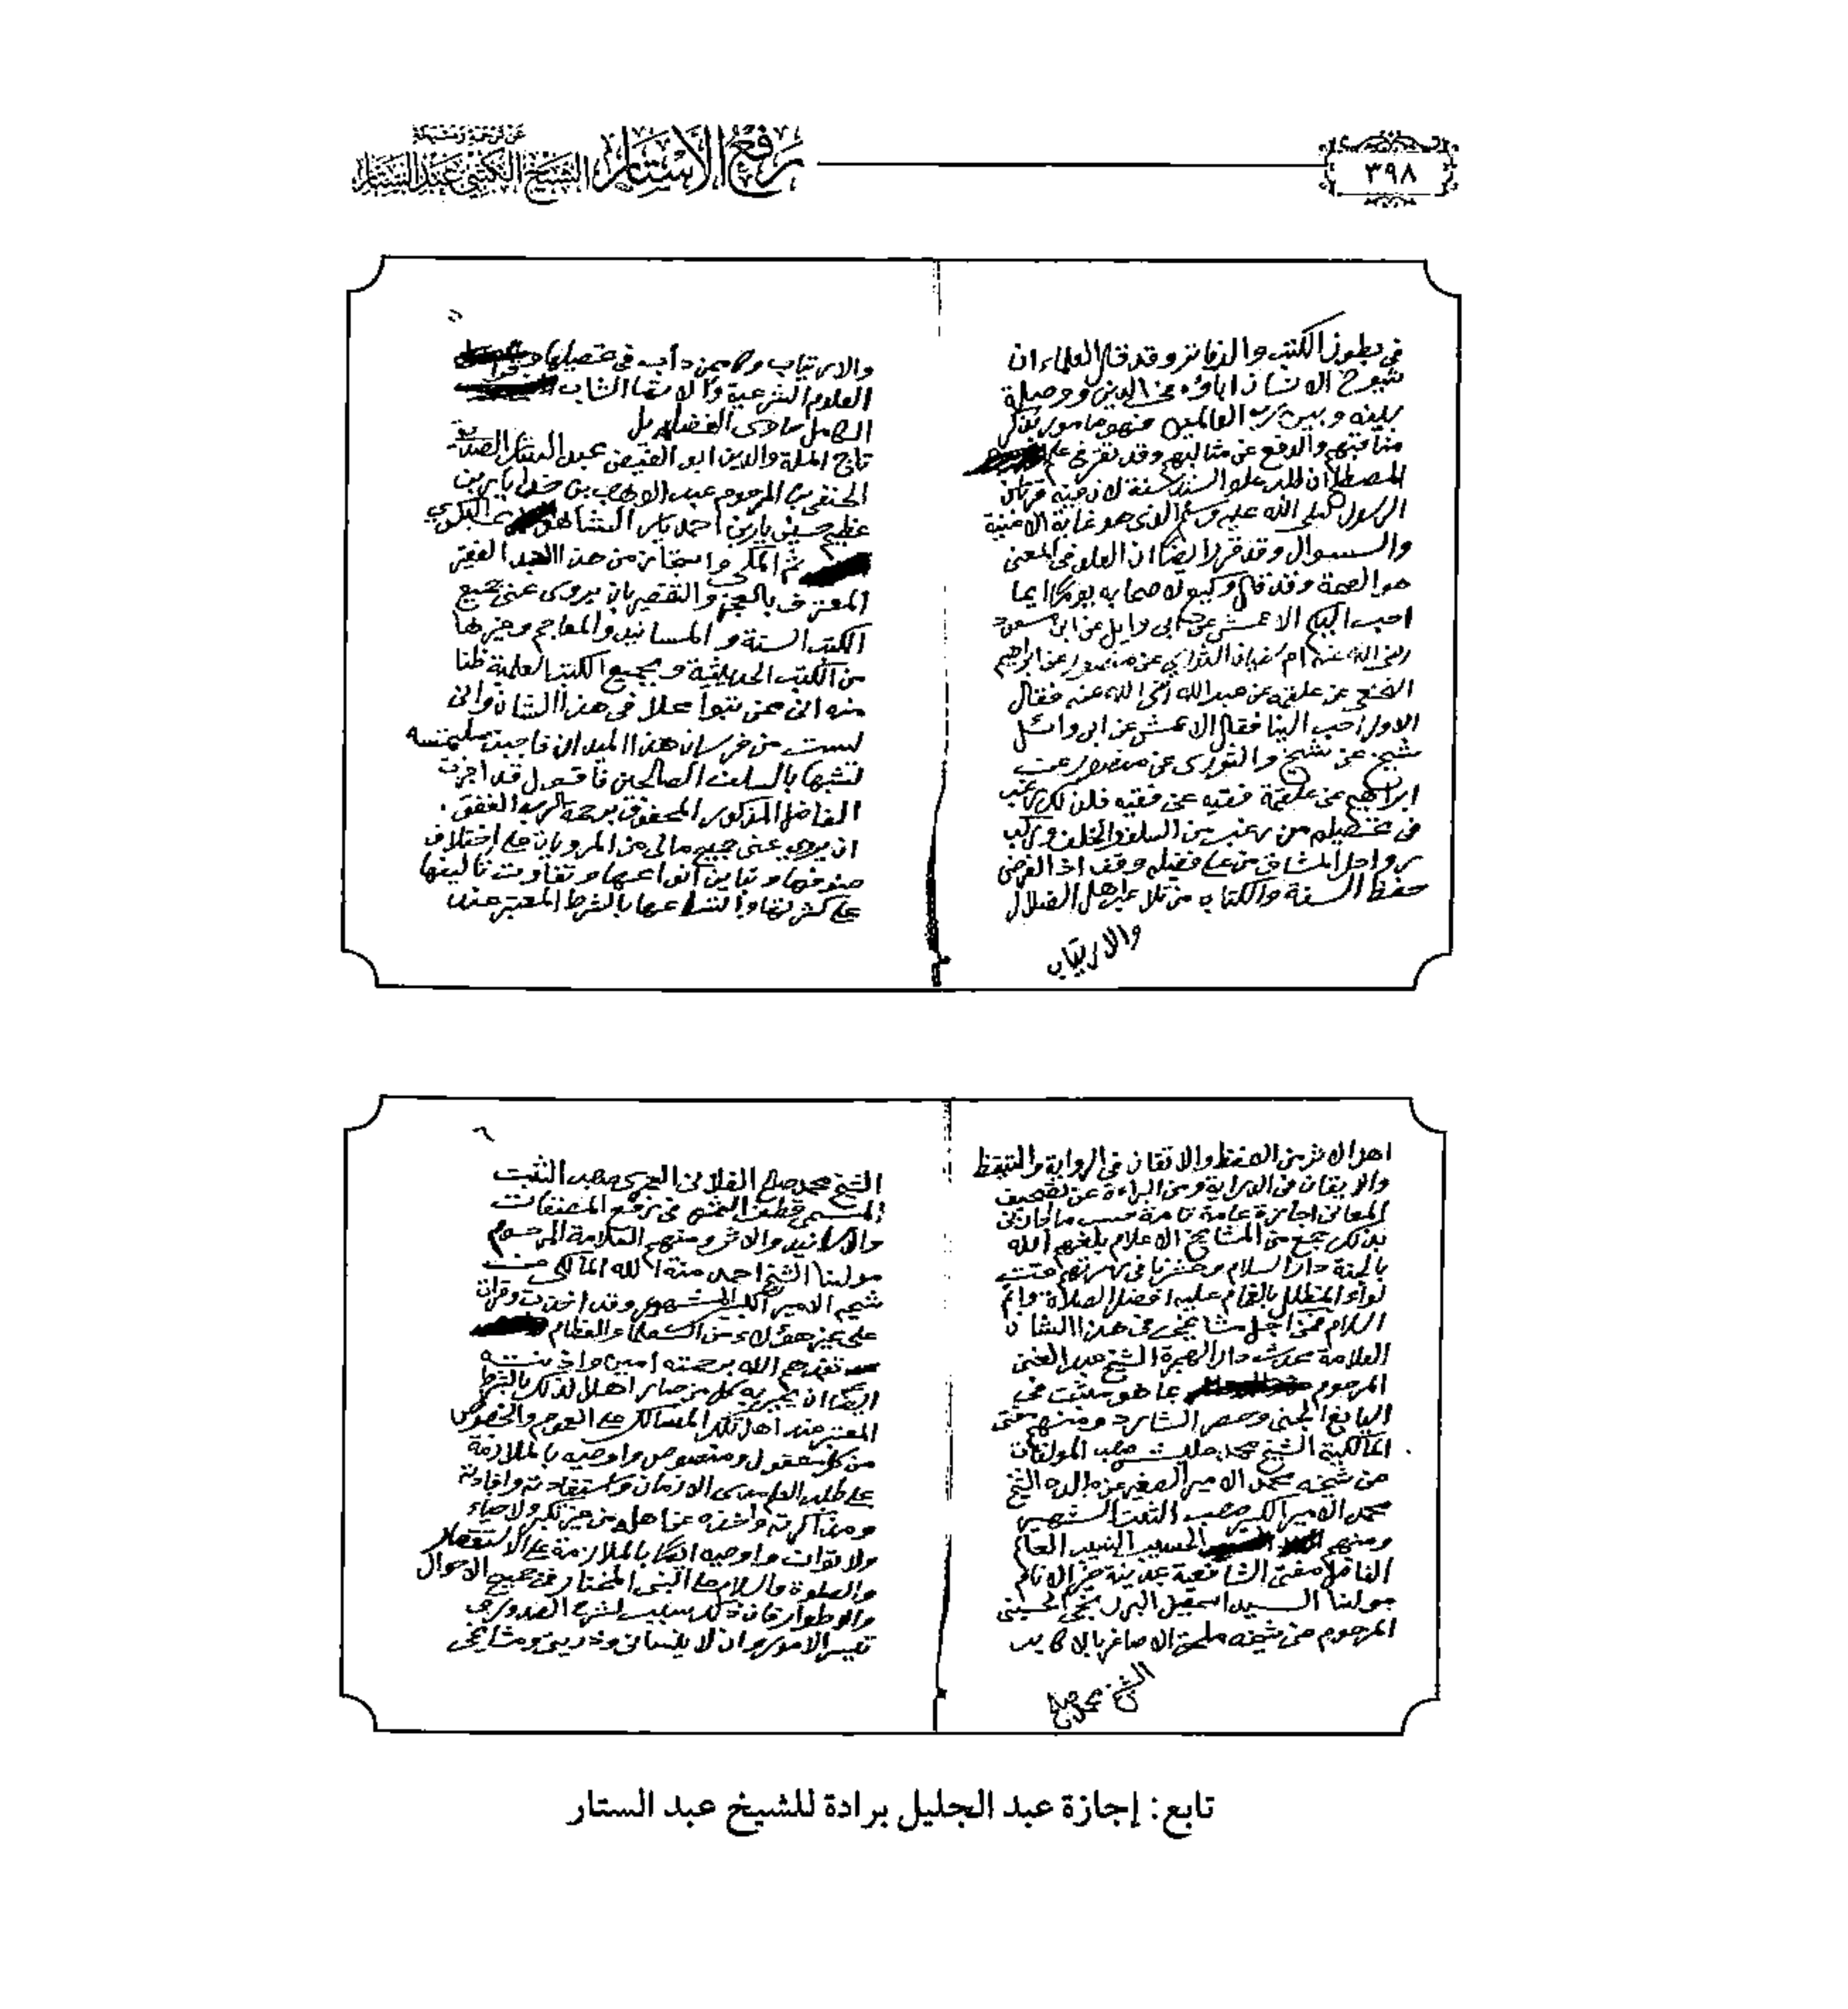 ٣٩٨
رفع الأستار
الشيخ الكتبي عبد الستار
في بطون الكتب والدفاتر وقد قال العلماء ان
شيوخ الانسان اباؤه في الدين ووصلة
بينه وبين رب العالمين فهو مامور بذكر
مناقبهم والدفع عن مثالبهم وقد تقرر في علم
المصطلح ان طلب علو السند سنة لان فيه قربا من
الرسول صلى الله عليه وسلم الذي هو غاية الامنية
والسوال وقد قرر ايضا ان العلو في المعنى
هو الصحة وقد قال وكيع لاصحابه يوما ايما
احب اليكم الاعمش عن ابي وايل عن ابن مسعود
رضى الله عنه ام سفيان الثوري عن منصور عن ابراهيم
النخعي عن علقمه عن عبد الله رضى الله عنه فقال
الاول احب الينا فقال الاعمش عن ابي وائل
شيخ عن شيخ والثوري عن منصور عن
ابراهيم عن علقمة فقيه عن فقيه فلذلك رغب
في تحصيله من رغب من السلف والخلف وركب
رواحل المشاق من علم فضيله وقف اذ الغرض
حفظ السنة والكتاب من تلاعب اهل الضلال
والارتياب
والارتياب وكان ممن دأب في تحصيلها
العلوم الشرعية والاستفا الشاب
الكامل حاوي الفضايل
تاج الملة والدين ابو الفيض عبد الستار الصديقي
الحنفي بن المرحوم عبد الوهاب بن خدا يار بن
عظيم حسين يار بن احمد يار البكري
ثم المكي واستجاز من هذا العبد الفقير
المعترف بالعجز والتقصير بان يروى عنى جميع
الكتب الستة والمسانيد والمعاجم وغيرها
من الكتب الحديثية وجميع الكتب العلمية ظنا
منه انى ممن تبوا محلا في هذا الشان وانى
لست من فرسان هذا الميدان فاجبت ملتمسه
تشبها بالسلف الصالحين فاقول قد اجزت
الفاضل المذكور المحفوف برحمة الرب الغفور
ان يروى عنى جميع مالى من المرويات على اختلاف
صنوفها وتباين انواعها وتفاوت تاليفها
على كثرتها واتساعها بالشرط المعتبر عند
٦
اهل الاثر من الحفظ والاتقان في الرواية والتيقظ
والايقان في الدراية ومن البراءة عن تصحيف
المعانى اجازة عامة تامة حسب ما اجازنى
بذلك جمع من المشايخ الاعلام بلغهم الله
بالجنة دار السلام وحشرنا في زمرتهم تحت
لواء المظلل بالغمام عليه افضل الصلاة واتم
السلام فمن اجل مشايخى في هذا الشان
العلامة محدث دار الهجرة الشيخ عبد الغنى
المرحوم بما هو مثبت في
اليانع الجنى وحصر الشارد ومنهم مفتى
المالكية الشيخ محمد عليش صاحب المولفات
عن شيخه محمد الامير الصغير عن والده الشيخ
محمد الامير الكبير صاحب الثبت الشهير
ومنهم الحسيب النسيب العالم
الفاضل مفتى الشافعية بمدينة خير الانام
مولنا السيد اسمعيل البرزنجى الحسينى
المرحوم عن شيخه ملحق الاصاغر بالاكابر
الشيخ محمد صالح
الشيخ محمد صالح الفلانى العمرى صاحب الثبت
المسمى قطف الثمر في رفع المصنفات
والاسانيد والاثر ومنهم العلامة المرحوم
مولنا الشيخ احمد منة الله المالكي عن
شيخه الامير الكبير المشهور وقد اخذت وقرات
على غير هؤلاء من العلماء والعظام
تغمدهم الله برحمته امين واذنت له
ايضا ان يجيز به كل من صار اهلا لذلك بالشرط
المعتبر عند اهل تلك المسالك على العموم والخصوص
من كل معقول ومنصوص واوصيه بالملازمة
على طلب العلم مدى الازمان واستفادته وافادته
ومذاكرته واخذه عن اهله من غير تكبر ولا حياء
ولا توان واوصيه ايضا بالملازمة على الاستغفار
والصلوة والسلام على النبى المختار في جميع الاحوال
والاطوار فان ذلك سبب لشرح الصدور في
تيسير الامور وان لا ينسانى وذريتى ومشايخى
تابع: إجازة عبد الجليل برادة للشيخ عبد الستار